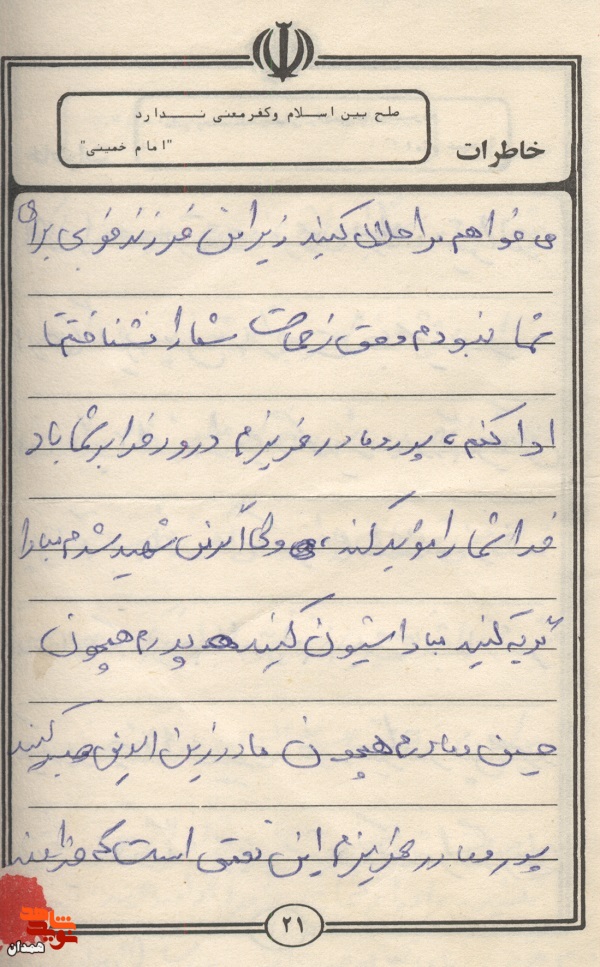 طح بین اسلام وکفر معنی ندارد
"امام خمینی"
خاطرات
می خواهم مرا حلال کنید زیرا من فرزند خوبی برای
شما نبودم و حق زحمات شما را نشناختم تا
ادا کنم، پدر و مادر عزیزم درود خدا بر شما باد
خدا شما را مؤید کند، ولی اگر من شهید شدم مبادا
گریه کنید مبادا شیون کنید پدرم همچون
حسین و مادرم همچون مادر زین الدین صبر کنید
پدر و مادر عزیزم این نعمتی است که خداوند
۲۱
نوید شاهد
همدان